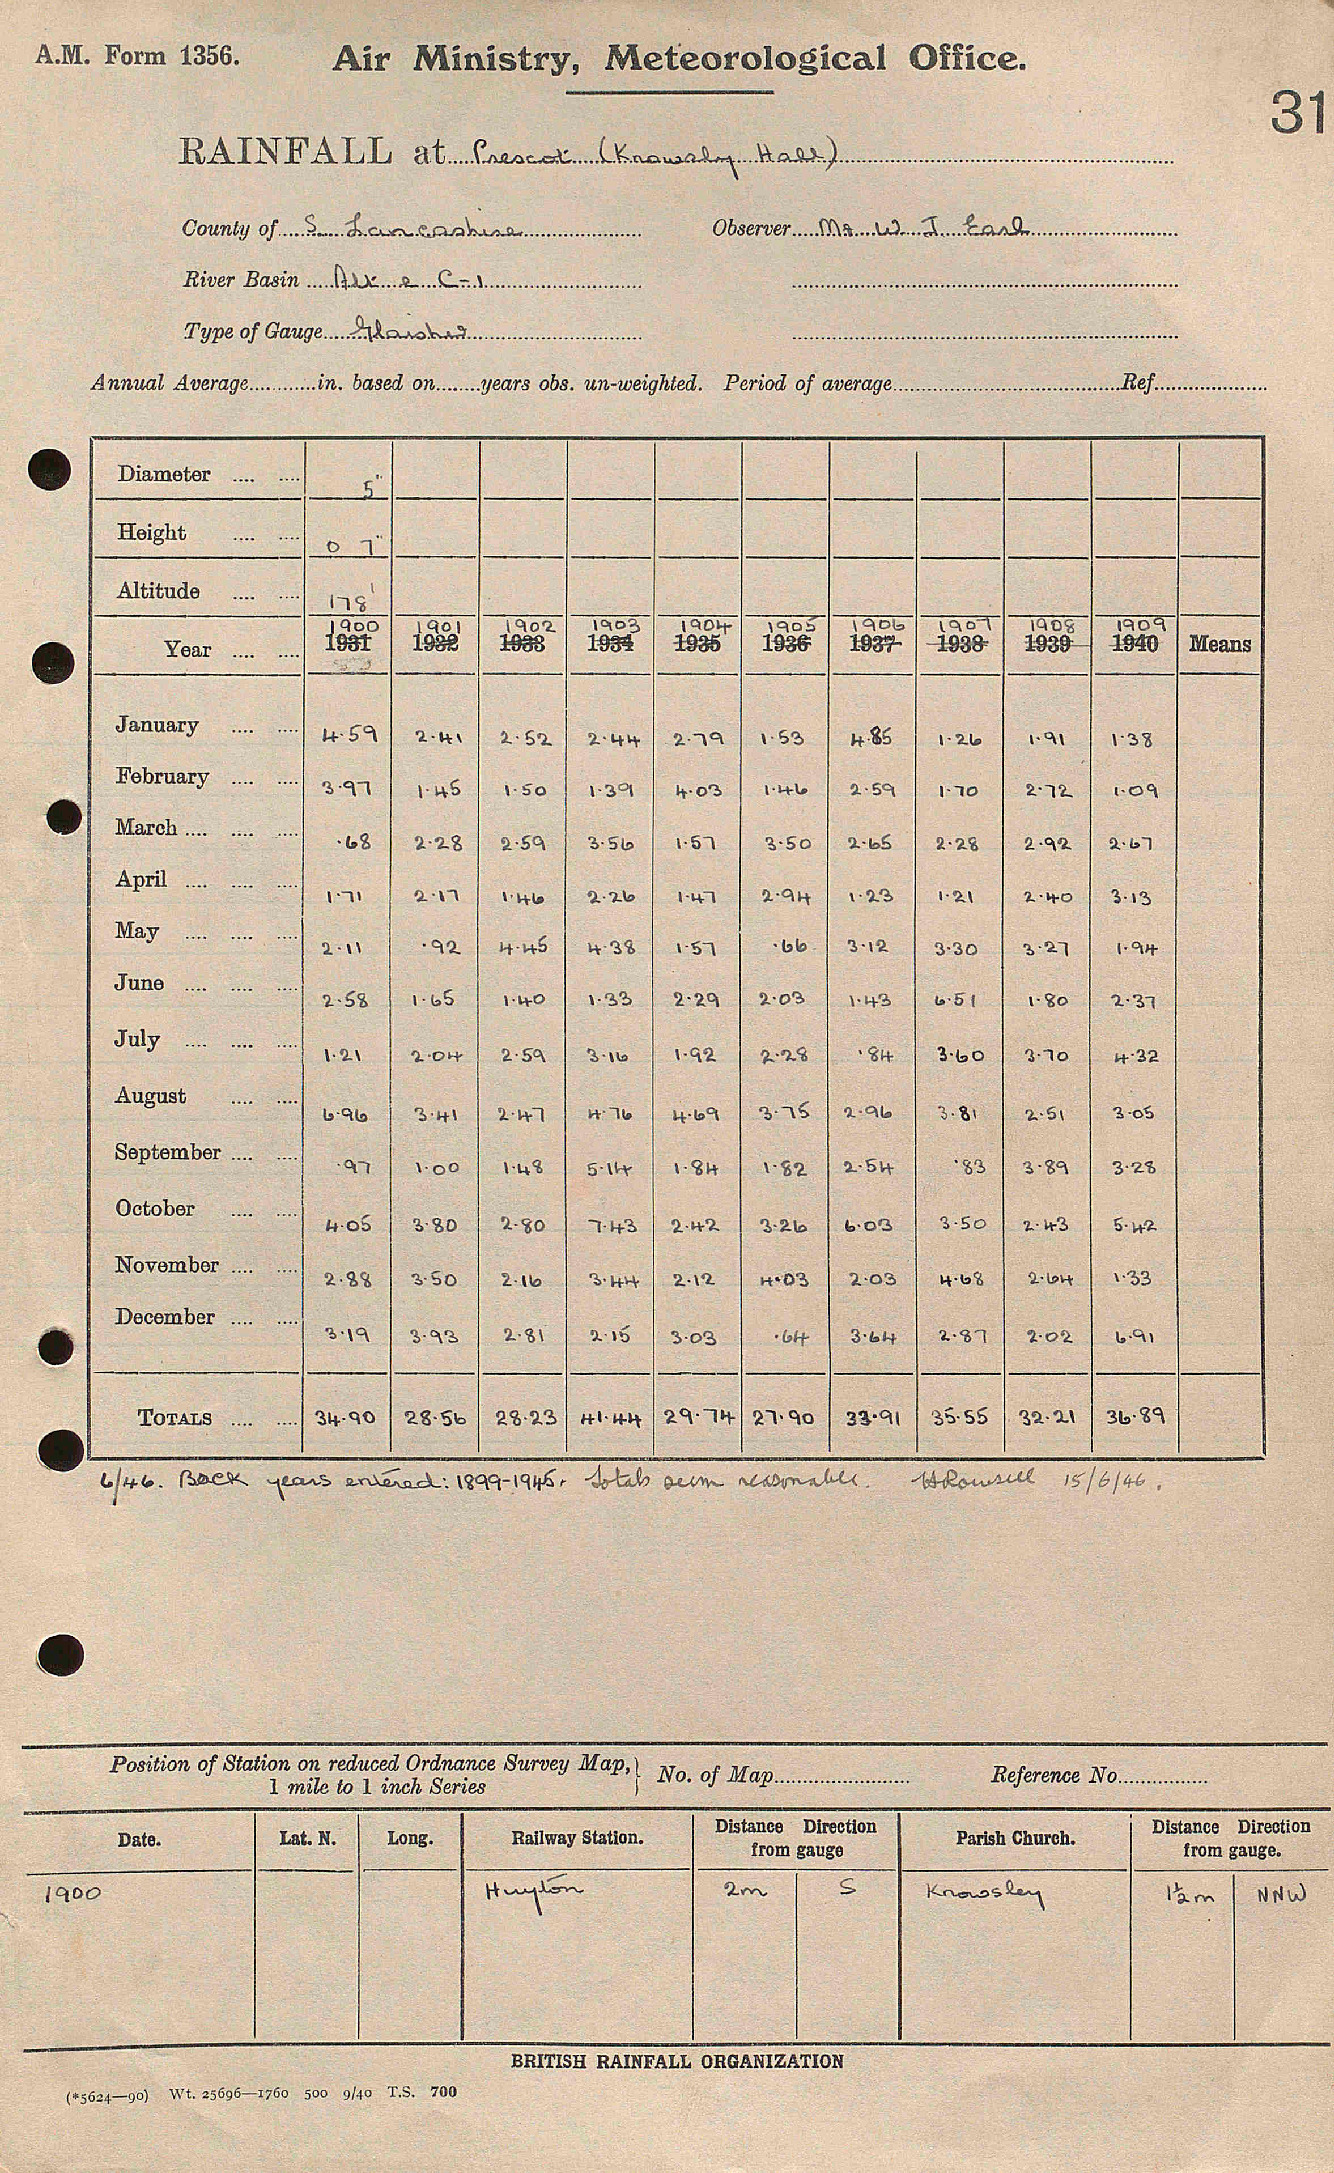 A.M. Form 1356. Air Ministry, Meteorological Office.
31
RAINFALL at Prescot (Knowsley Hall)
County of S. Lancashire Observer Mr W J Earl
River Basin Alt e C-1
Type of Gauge Glaisher
Annual Average in. based on years obs. un-weighted. Period of average Ref.
Diameter .... .... 5"
Height .... .... 0 7"
Altitude .... .... 178'
1900 1901 1902 1903 1904 1905 1906 1907 1908 1909
Year .... .... 1931 1932 1933 1934 1935 1936 1937 1938 1939 1940 Means
January .... .... 4·59 2·41 2·52 2·44 2·79 1·53 4·85 1·26 1·91 1·38
February .... .... 3·97 1·45 1·50 1·39 4·03 1·46 2·59 1·70 2·72 1·09
March .... .... .... ·68 2·28 2·59 3·56 1·57 3·50 2·65 2·28 2·92 2·67
April .... .... .... 1·71 2·17 1·46 2·26 1·47 2·94 1·23 1·21 2·40 3·13
May .... .... .... 2·11 ·92 4·45 4·38 1·57 ·66 3·12 3·30 3·27 1·94
June .... .... .... 2·58 1·65 1·40 1·33 2·29 2·03 1·43 6·51 1·80 2·37
July .... .... .... 1·21 2·04 2·59 3·16 1·92 2·28 ·84 3·60 3·70 4·32
August .... .... 6·96 3·41 2·47 4·76 4·69 3·75 2·96 3·81 2·51 3·05
September .... .... ·97 1·00 1·48 5·14 1·84 1·82 2·54 ·83 3·89 3·28
October .... .... 4·05 3·80 2·80 7·43 2·42 3·26 6·03 3·50 2·43 5·42
November .... .... 2·88 3·50 2·16 3·44 2·12 4·03 2·03 4·68 2·64 1·33
December .... .... 3·19 3·93 2·81 2·15 3·03 ·64 3·64 2·87 2·02 6·91
TOTALS .... .... 34·90 28·56 28·23 41·44 29·74 27·90 33·91 35·55 32·21 36·89
6/46. Back years entered: 1899-1945. Totals seem reasonable. HRowsell 15/6/46.
Position of Station on reduced Ordnance Survey Map, No. of Map Reference No.
1 mile to 1 inch Series
Date. Lat. N. Long. Railway Station. Distance Direction from gauge Parish Church. Distance Direction from gauge.
1900 Huyton 2m S Knowsley 1½m NNW
BRITISH RAINFALL ORGANIZATION
(*5624—90) Wt. 25696—1760 500 9/40 T.S. 700